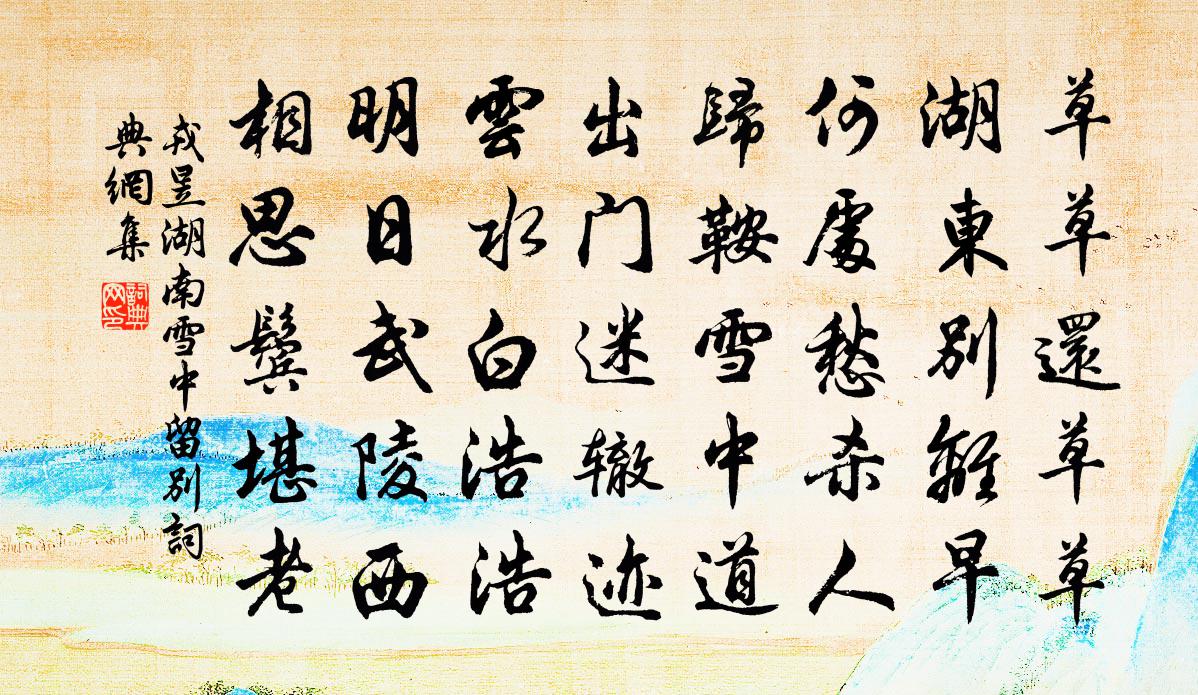 草草還草草
湖東別離早
何處愁杀人
歸鞍雪中道
出门迷辙迹
雲水白浩浩
明日武陵西
相思鬓堪老
戎昱湖南雪中留别詞
典網集
詞典
网印